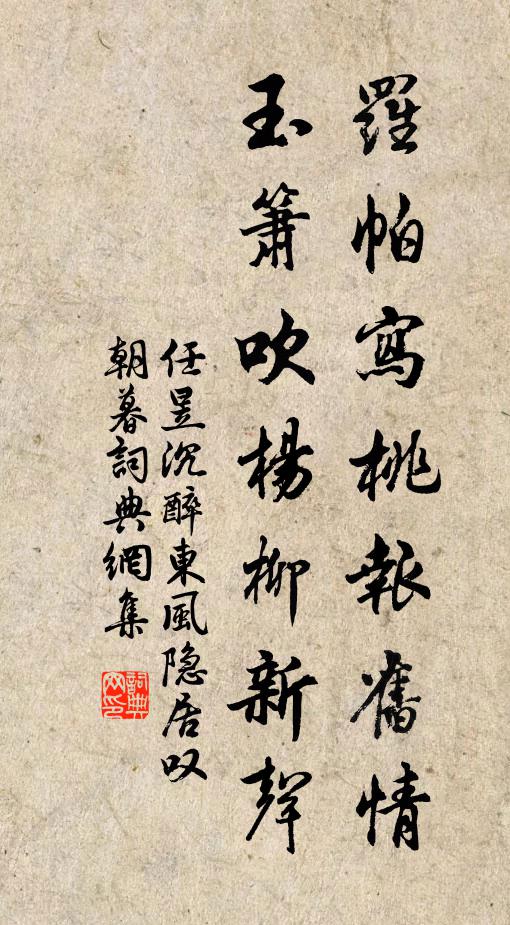 羅帕寫桃報舊情
玉簫吹楊柳新聲
任昱沉醉東風隐居叹
朝暮詞典網集
詞典
网印